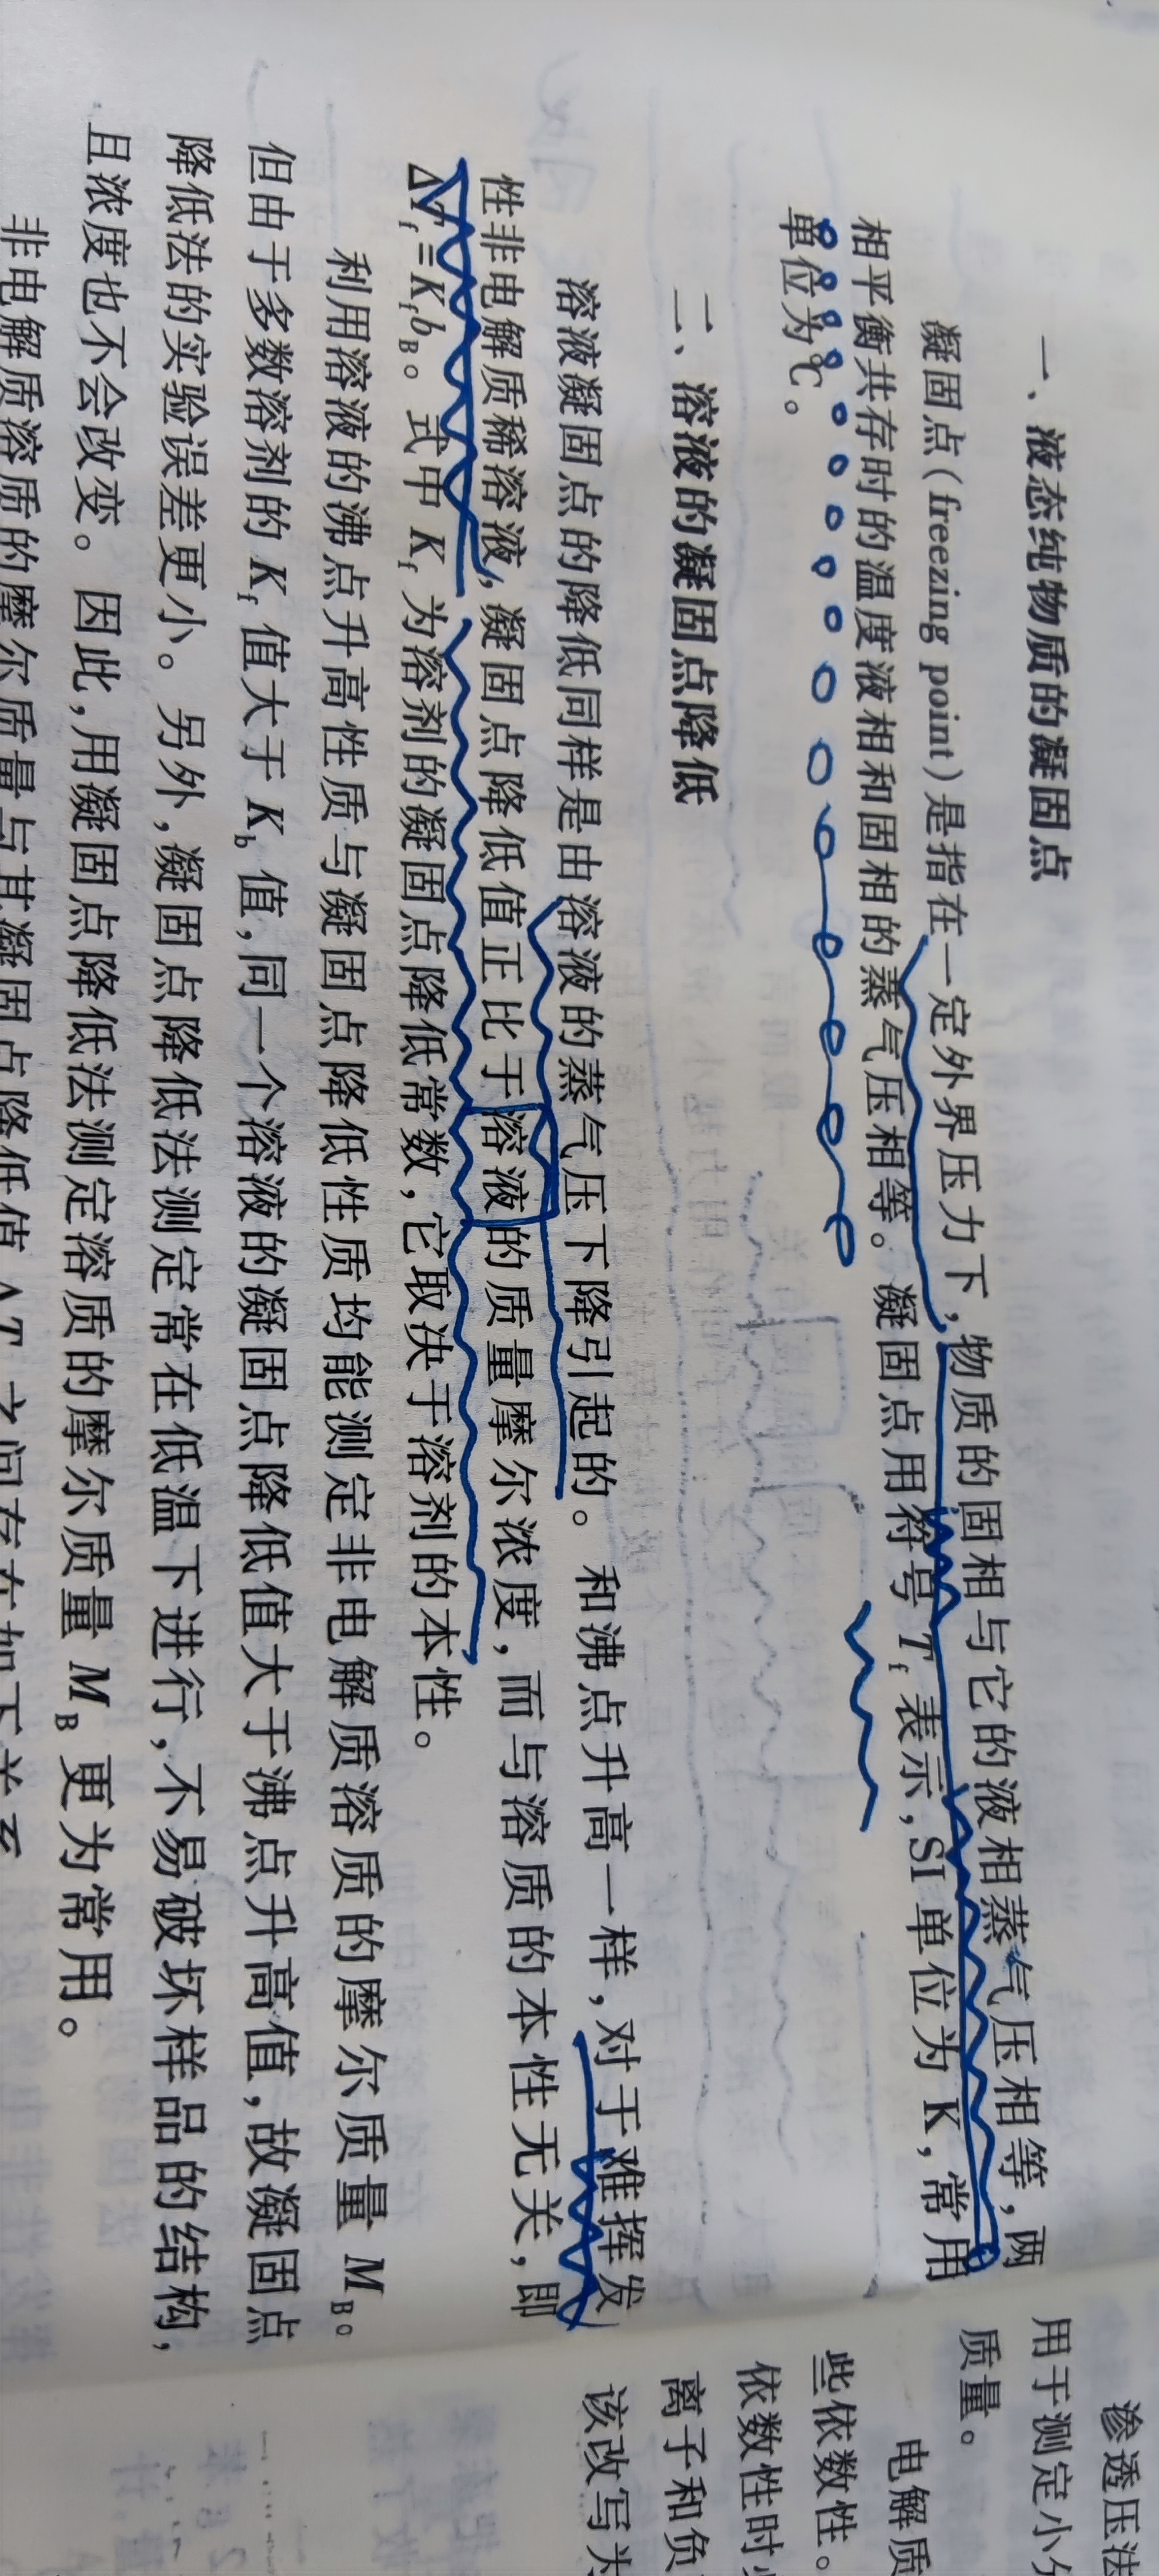 一、液态纯物质的凝固点
凝固点(freezing point)是指在一定外界压力下,物质的固相与它的液相蒸气压相等,两
相平衡共存时的温度液相和固相的蒸气压相等。凝固点用符号 Tf 表示,SI 单位为 K,常用
单位为℃。
二、溶液的凝固点降低
溶液凝固点的降低同样是由溶液的蒸气压下降引起的。和沸点升高一样,对于难挥发
性非电解质稀溶液,凝固点降低值正比于溶液的质量摩尔浓度,而与溶质的本性无关,即
ΔTf=KfbB。式中 Kf 为溶剂的凝固点降低常数,它取决于溶剂的本性。
利用溶液的沸点升高性质与凝固点降低性质均能测定非电解质溶质的摩尔质量 MB。
但由于多数溶剂的 Kf 值大于 Kb 值,同一个溶液的凝固点降低值大于沸点升高值,故凝固点
降低法的实验误差更小。另外,凝固点降低法测定常在低温下进行,不易破坏样品的结构,
且浓度也不会改变。因此,用凝固点降低法测定溶质的摩尔质量 MB 更为常用。
非电解质溶质的摩尔质量与其凝固点降低值 ΔT 之间存在如下关系
渗透压法
用于测定小分
质量。
电解质
些依数性。
依数性时
离子和负
该改写为